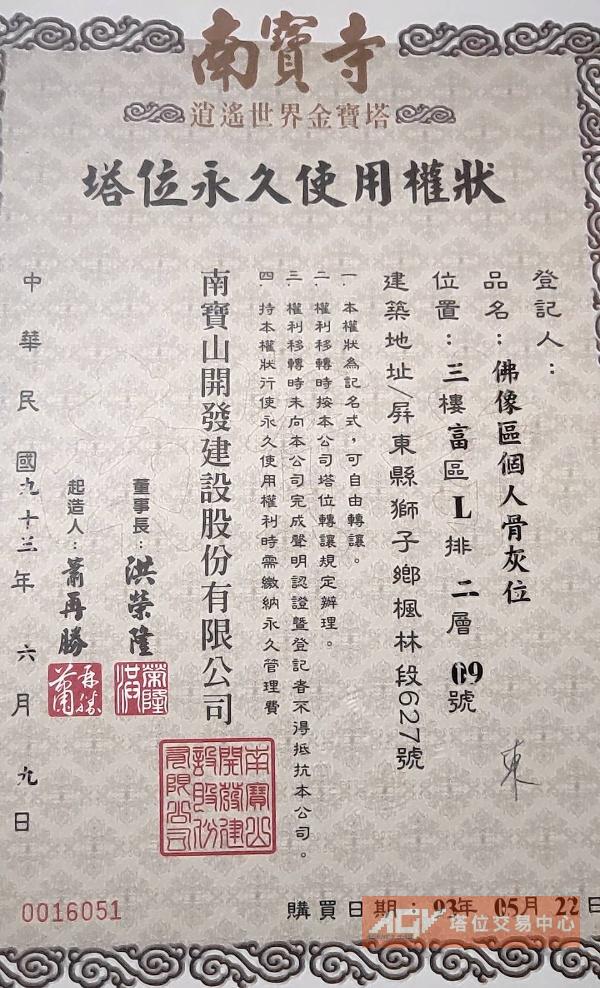 南寶寺
逍遙世界金寶塔
塔位永久使用權狀
登記人：
品名：佛像區個人骨灰位
位置：三樓富區L排二層09號
建築地址/屏東縣獅子鄉楓林段627號
一、本權狀為記名式，可自由轉讓。
二、權利移轉時按本公司塔位轉讓規定辦理。
三、權利移轉時未向本公司完成聲明認證暨登記者不得抵抗本公司。
四、持本權狀行使永久使用權利時需繳納永久管理費
南寶山開發建設股份有限公司
董事長：洪榮隆
榮隆洪
起造人：蕭再勝
再勝蕭
南寶山開發建設股份有限公司
中華民國九十三年六月九日
東
0016051
購買日期：93年05月22日
AGV 塔位交易中心